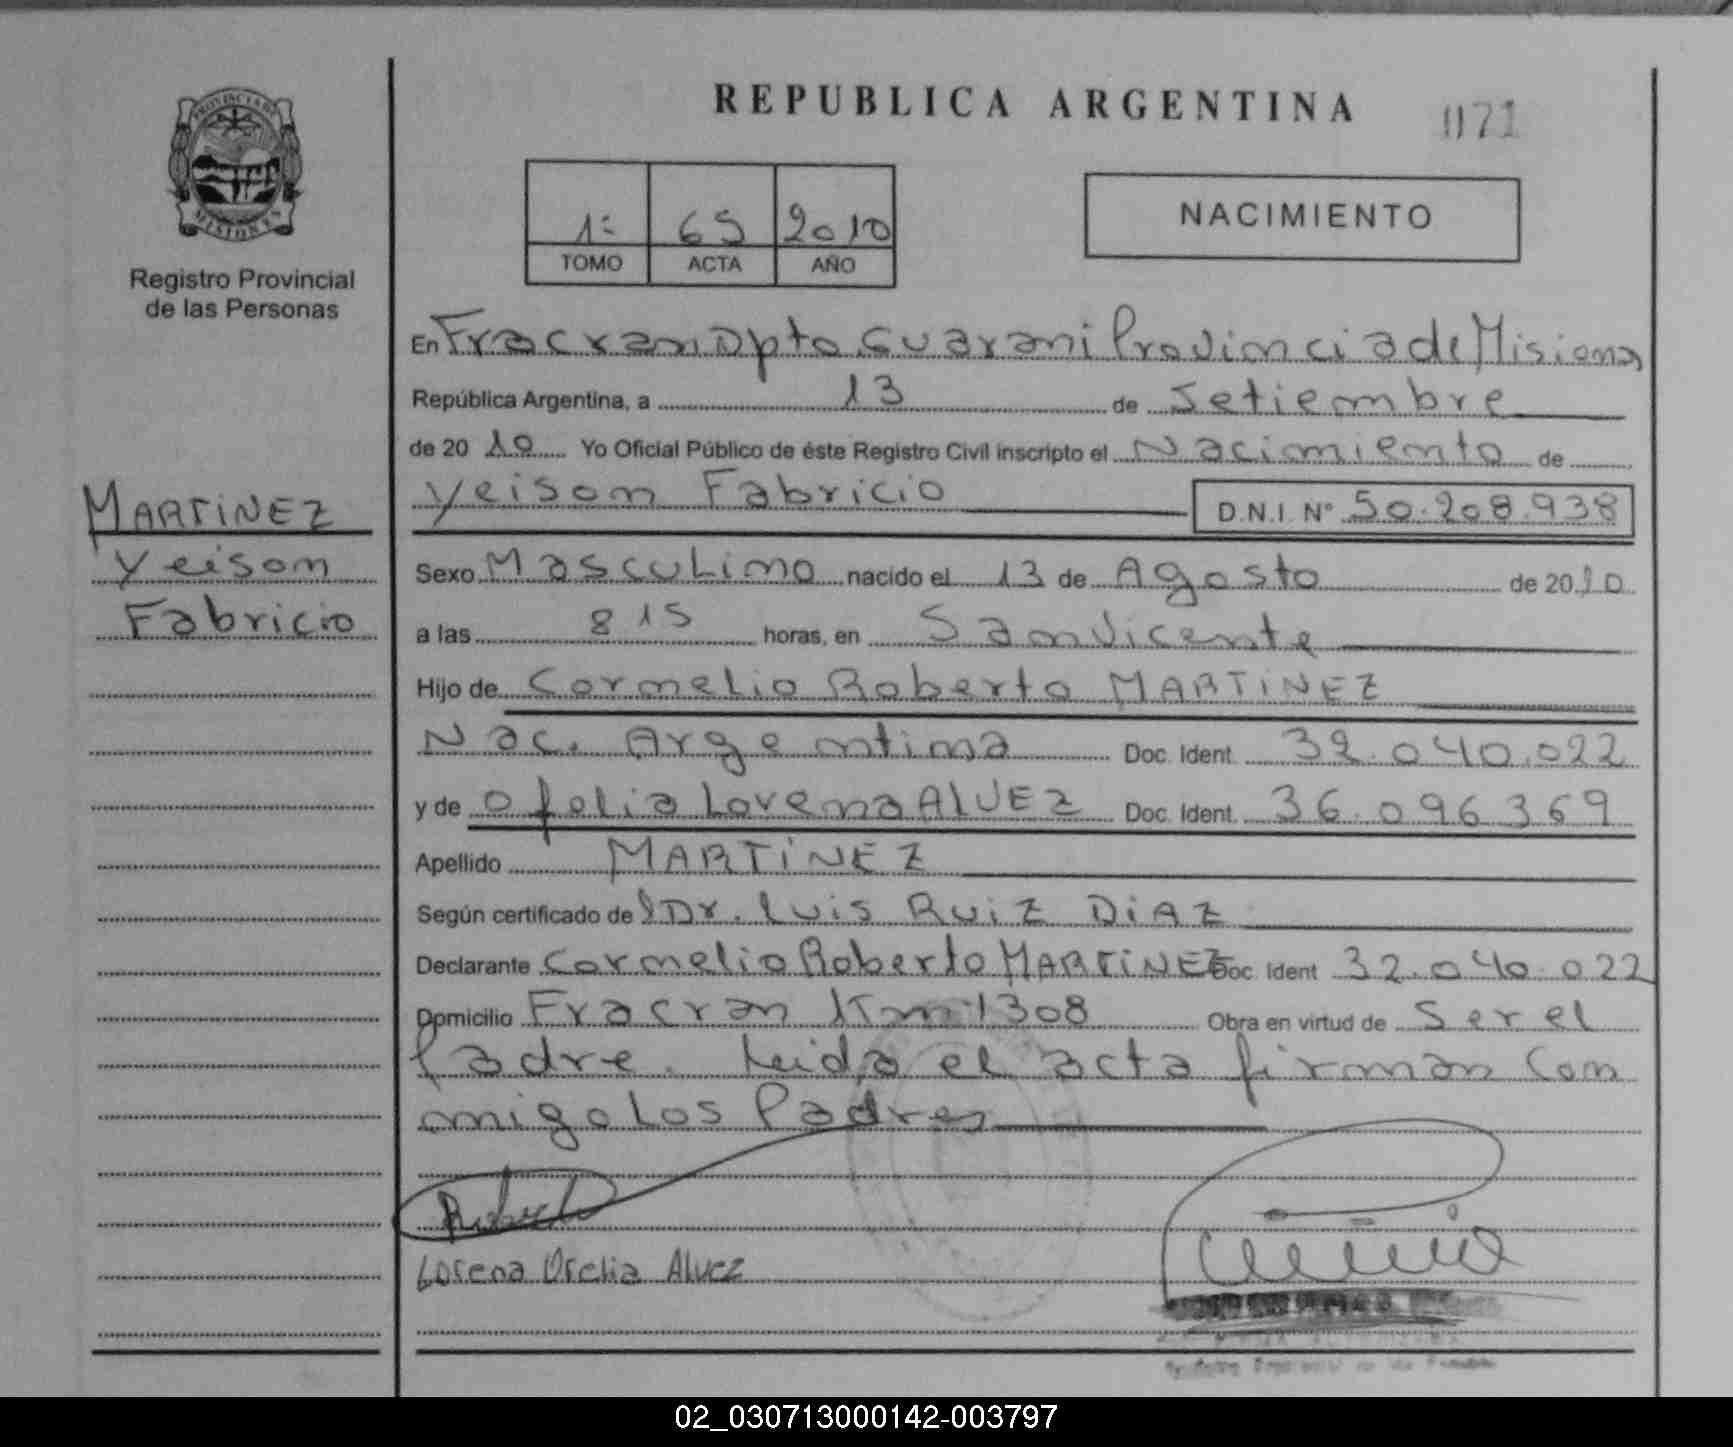 REPUBLICA ARGENTINA
071
PROVINCIA DE
MISIONES
Registro Provincial
de las Personas
1º 65 2010
TOMO ACTA AÑO
NACIMIENTO
En Fracran Dpto. Guarani Provincia de Misiones
República Argentina, a 13 de Setiembre
de 2010 Yo Oficial Público de éste Registro Civil inscripto el Nacimiento de
Yeison Fabricio D.N.I. Nº 50.208.938
MARTINEZ
Yeison
Fabricio
Sexo Masculino nacido el 13 de Agosto de 2010
a las 8 15 horas, en San Vicente
Hijo de Cornelio Roberto MARTINEZ
Nac. Argentina Doc. Ident. 32.040.022
y de Ofelia Lorena ALVEZ Doc. Ident. 36.096369
Apellido MARTINEZ
Según certificado de Dr. Luis RUIZ DIAZ
Declarante Cornelio Roberto MARTINEZ Doc. Ident 32.040.022
Domicilio Fracran Km 1308 Obra en virtud de Ser el
Padre. Leida el acta firman Con
migo Los Padres
Roberto
Lorena Ofelia Alvez
02_030713000142-003797